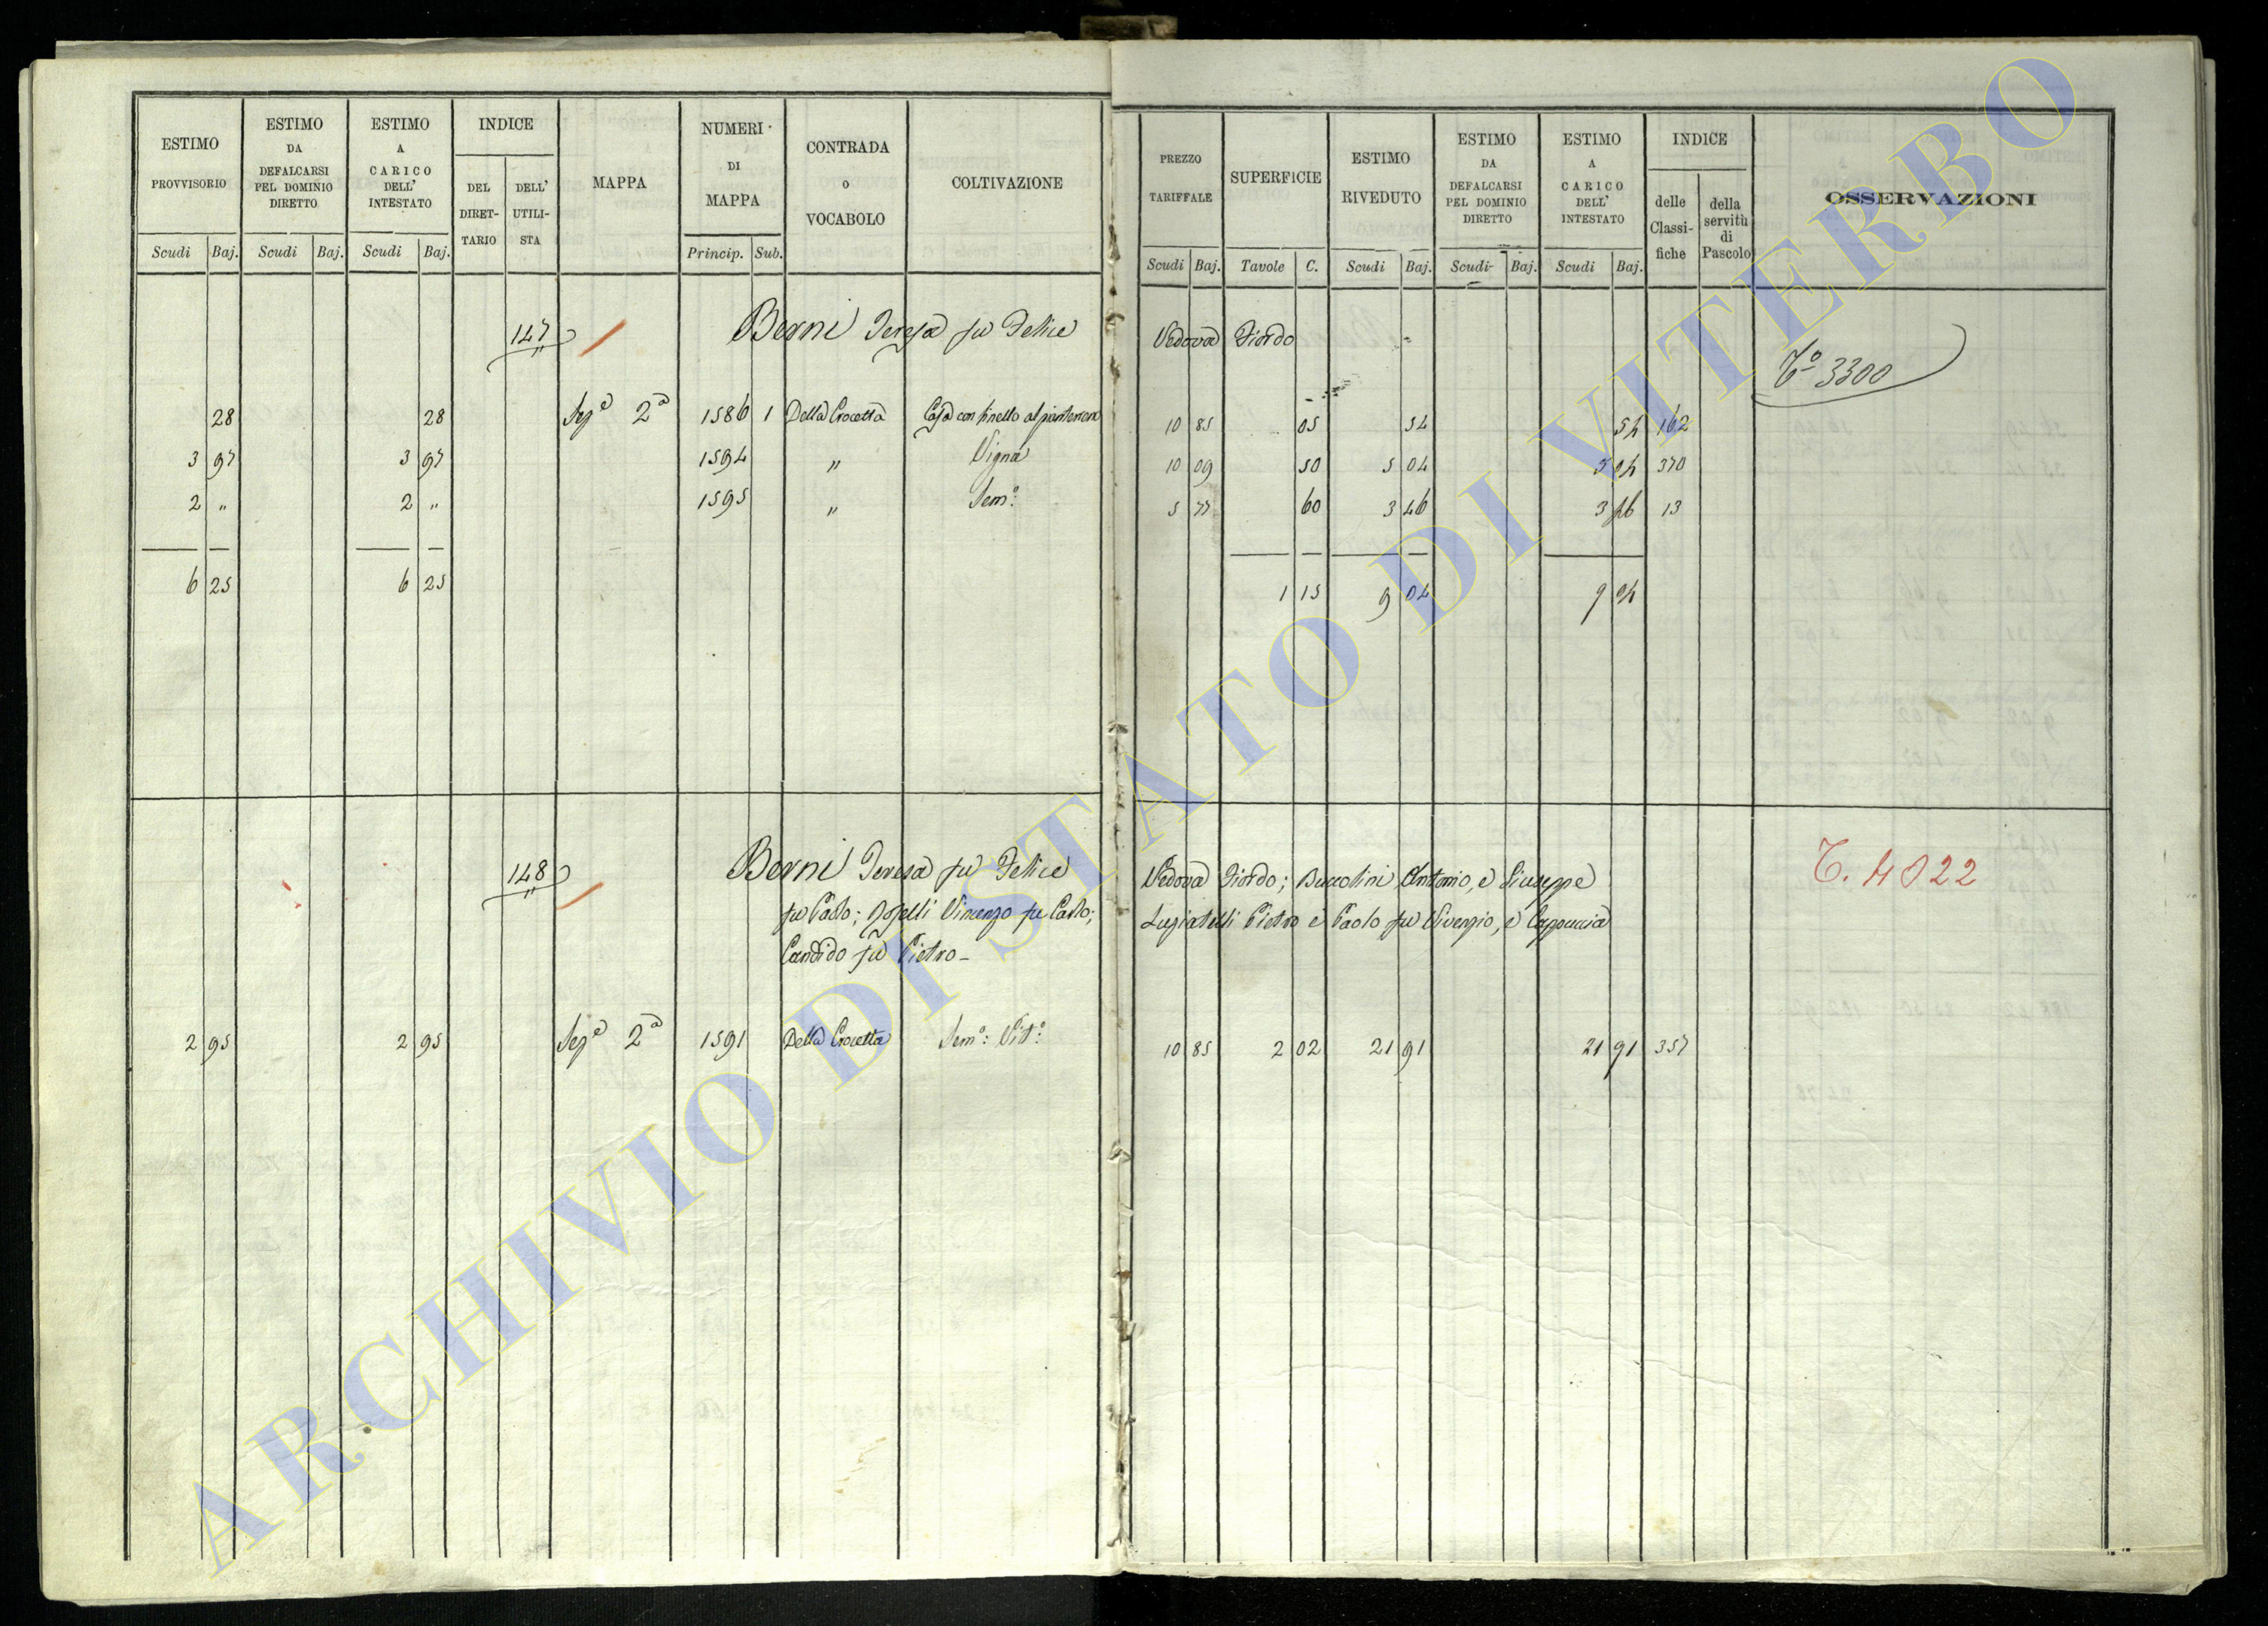 ESTIMO PROVVISORIO
ESTIMO DA DEFALCARSI PEL DOMINIO DIRETTO
ESTIMO A CARICO DELL' INTESTATO
INDICE
DEL DIRET- TARIO
DELL' UTILI- STA
MAPPA
NUMERI DI MAPPA
CONTRADA O VOCABOLO
COLTIVAZIONE
PREZZO TARIFFALE
SUPERFICIE
ESTIMO RIVEDUTO
ESTIMO DA DEFALCARSI PEL DOMINIO DIRETTO
ESTIMO A CARICO DELL' INTESTATO
INDICE
delle Classi- fiche
della servitù di Pascolo
OSSERVAZIONI
Scudi Baj. Scudi Baj. Scudi Baj. Princip. Sub. Scudi Baj. Tavole C. Scudi Baj. Scudi Baj. Scudi Baj.
147 Berni Teresa fu Felice Vedova Fiordo
To 3300
28 28 Seze 2a 1586 1 Della Crocetta Casa con tinello al pianterreno 10 85 05 54 54 162
3 97 3 97 1594 " Vigna 10 09 50 5 04 5 04 370
2 " 2 " 1595 " Semo: 5 77 60 3 46 3 46 13
6 25 6 25 1 15 9 04 9 04
148 Berni Teresa fu Felice Vedova Fiordo; Buccolini Antonio, e Giuseppe
T. 4022
fu Paolo; Vincenzo fu Carlo; Pietro e Paolo fu e
Candido fu Pietro-
2 95 2 95 Seze 2a 1591 Della Crocetta Semo: Vito: 10 85 2 02 21 91 21 91 357
ARCHIVIO DI STATO DI VITERBO